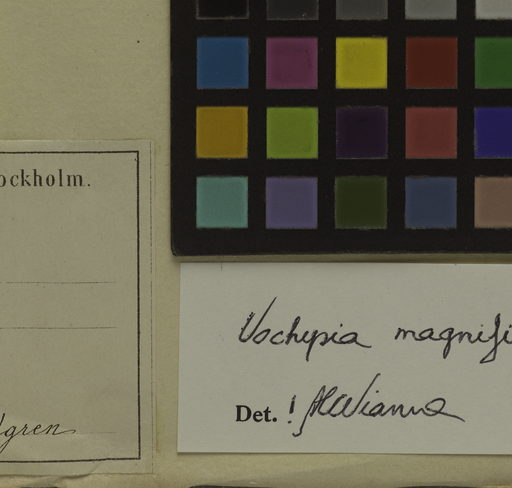 ockholm.
lgren
Vochysia magnifi
Det. ! MCVianna